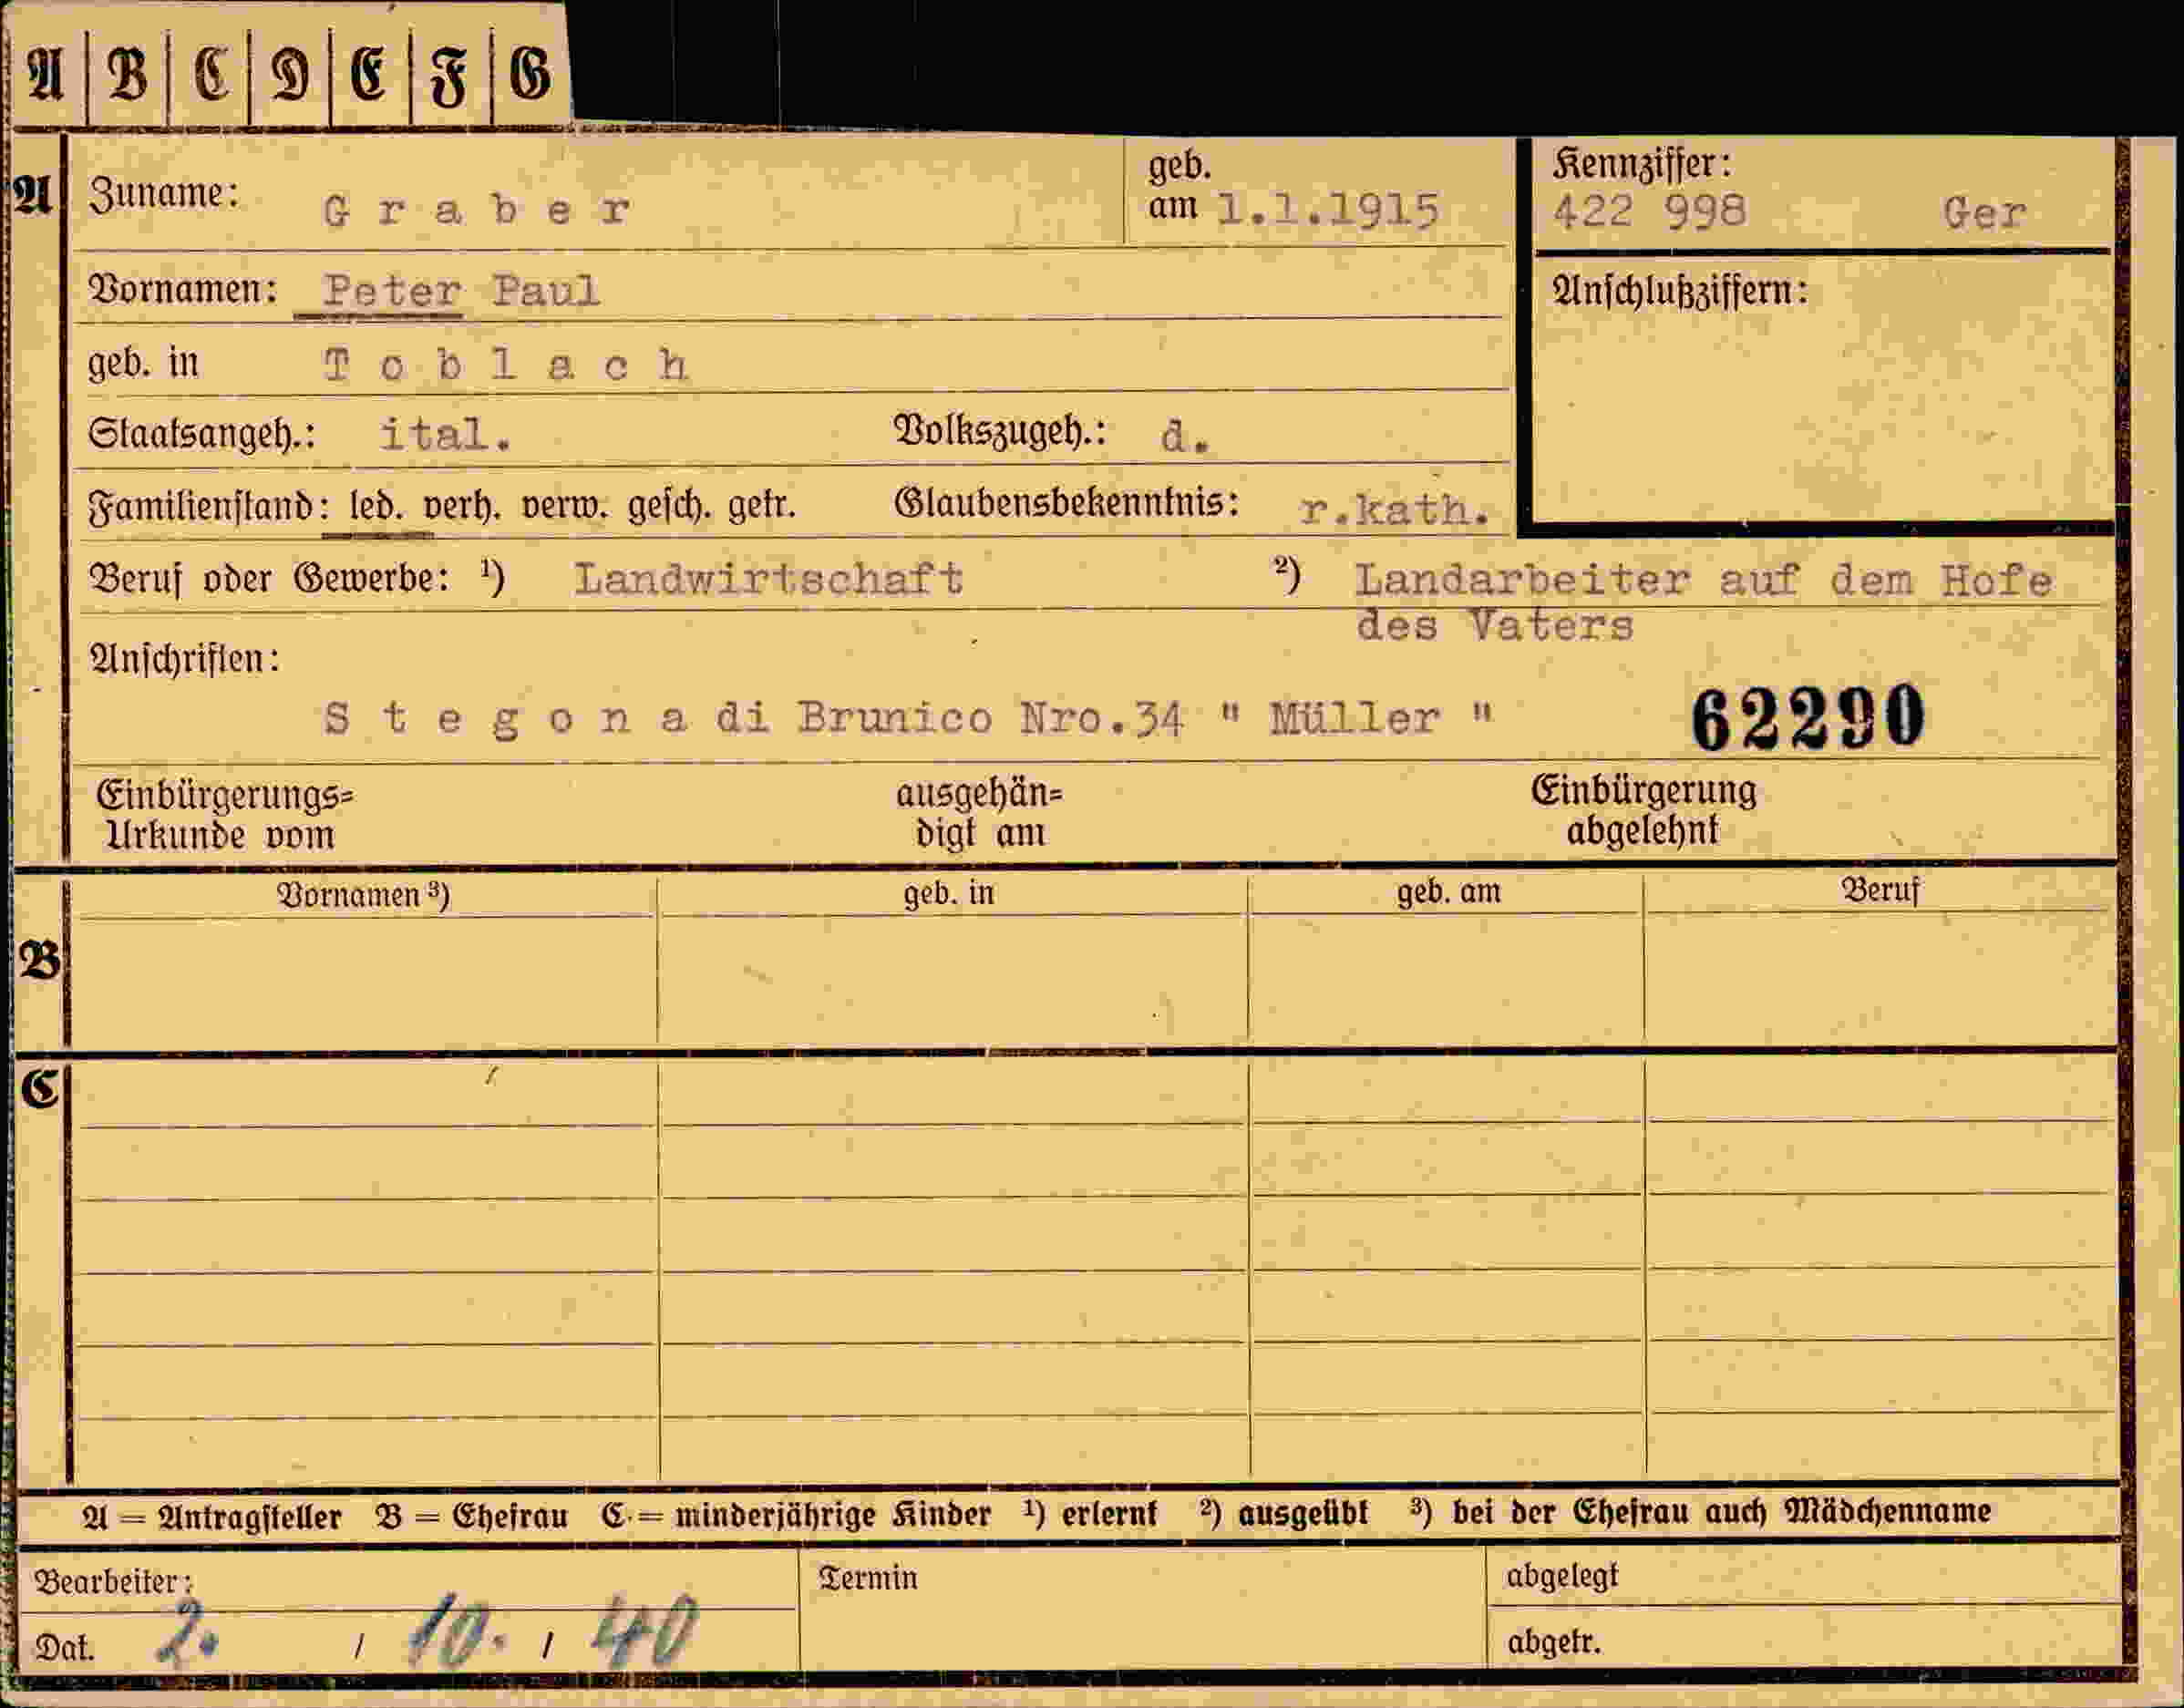 A B C D E F G
A Zuname: Graber geb. am 1.1.1915 Kennziffer: 422 998 Ger
Vornamen: Peter Paul Anschlußziffern:
geb. in Toblach
Staatsangeh.: ital. Volkszugeh.: d.
Familienstand: led. verh. verw. gesch. getr. Glaubensbekenntnis: r.kath.
Beruf oder Gewerbe: ¹) Landwirtschaft ²) Landarbeiter auf dem Hofe
des Vaters
Anschriften:
Stegona di Brunico Nro.34 " Müller " 62290
Einbürgerungs= ausgehän= Einbürgerung
Urkunde vom digt am abgelehnt
Vornamen ³) geb. in geb. am Beruf
B
C
A = Antragsteller B = Ehefrau C = minderjährige Kinder ¹) erlernt ²) ausgeübt ³) bei der Ehefrau auch Mädchenname
Bearbeiter: Termin abgelegt
Dat. 2. / 10. / 40 abgetr.